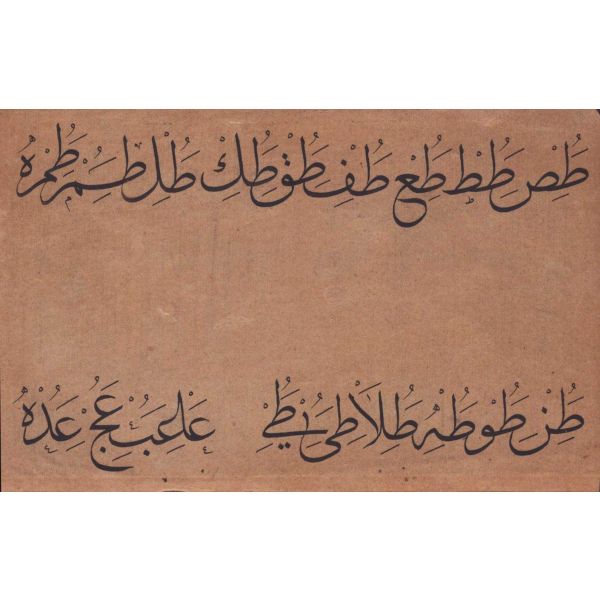 طص طط طع طف طق طك طل طم طمره
طن طو طه طلا طى طے عا عب عج عده